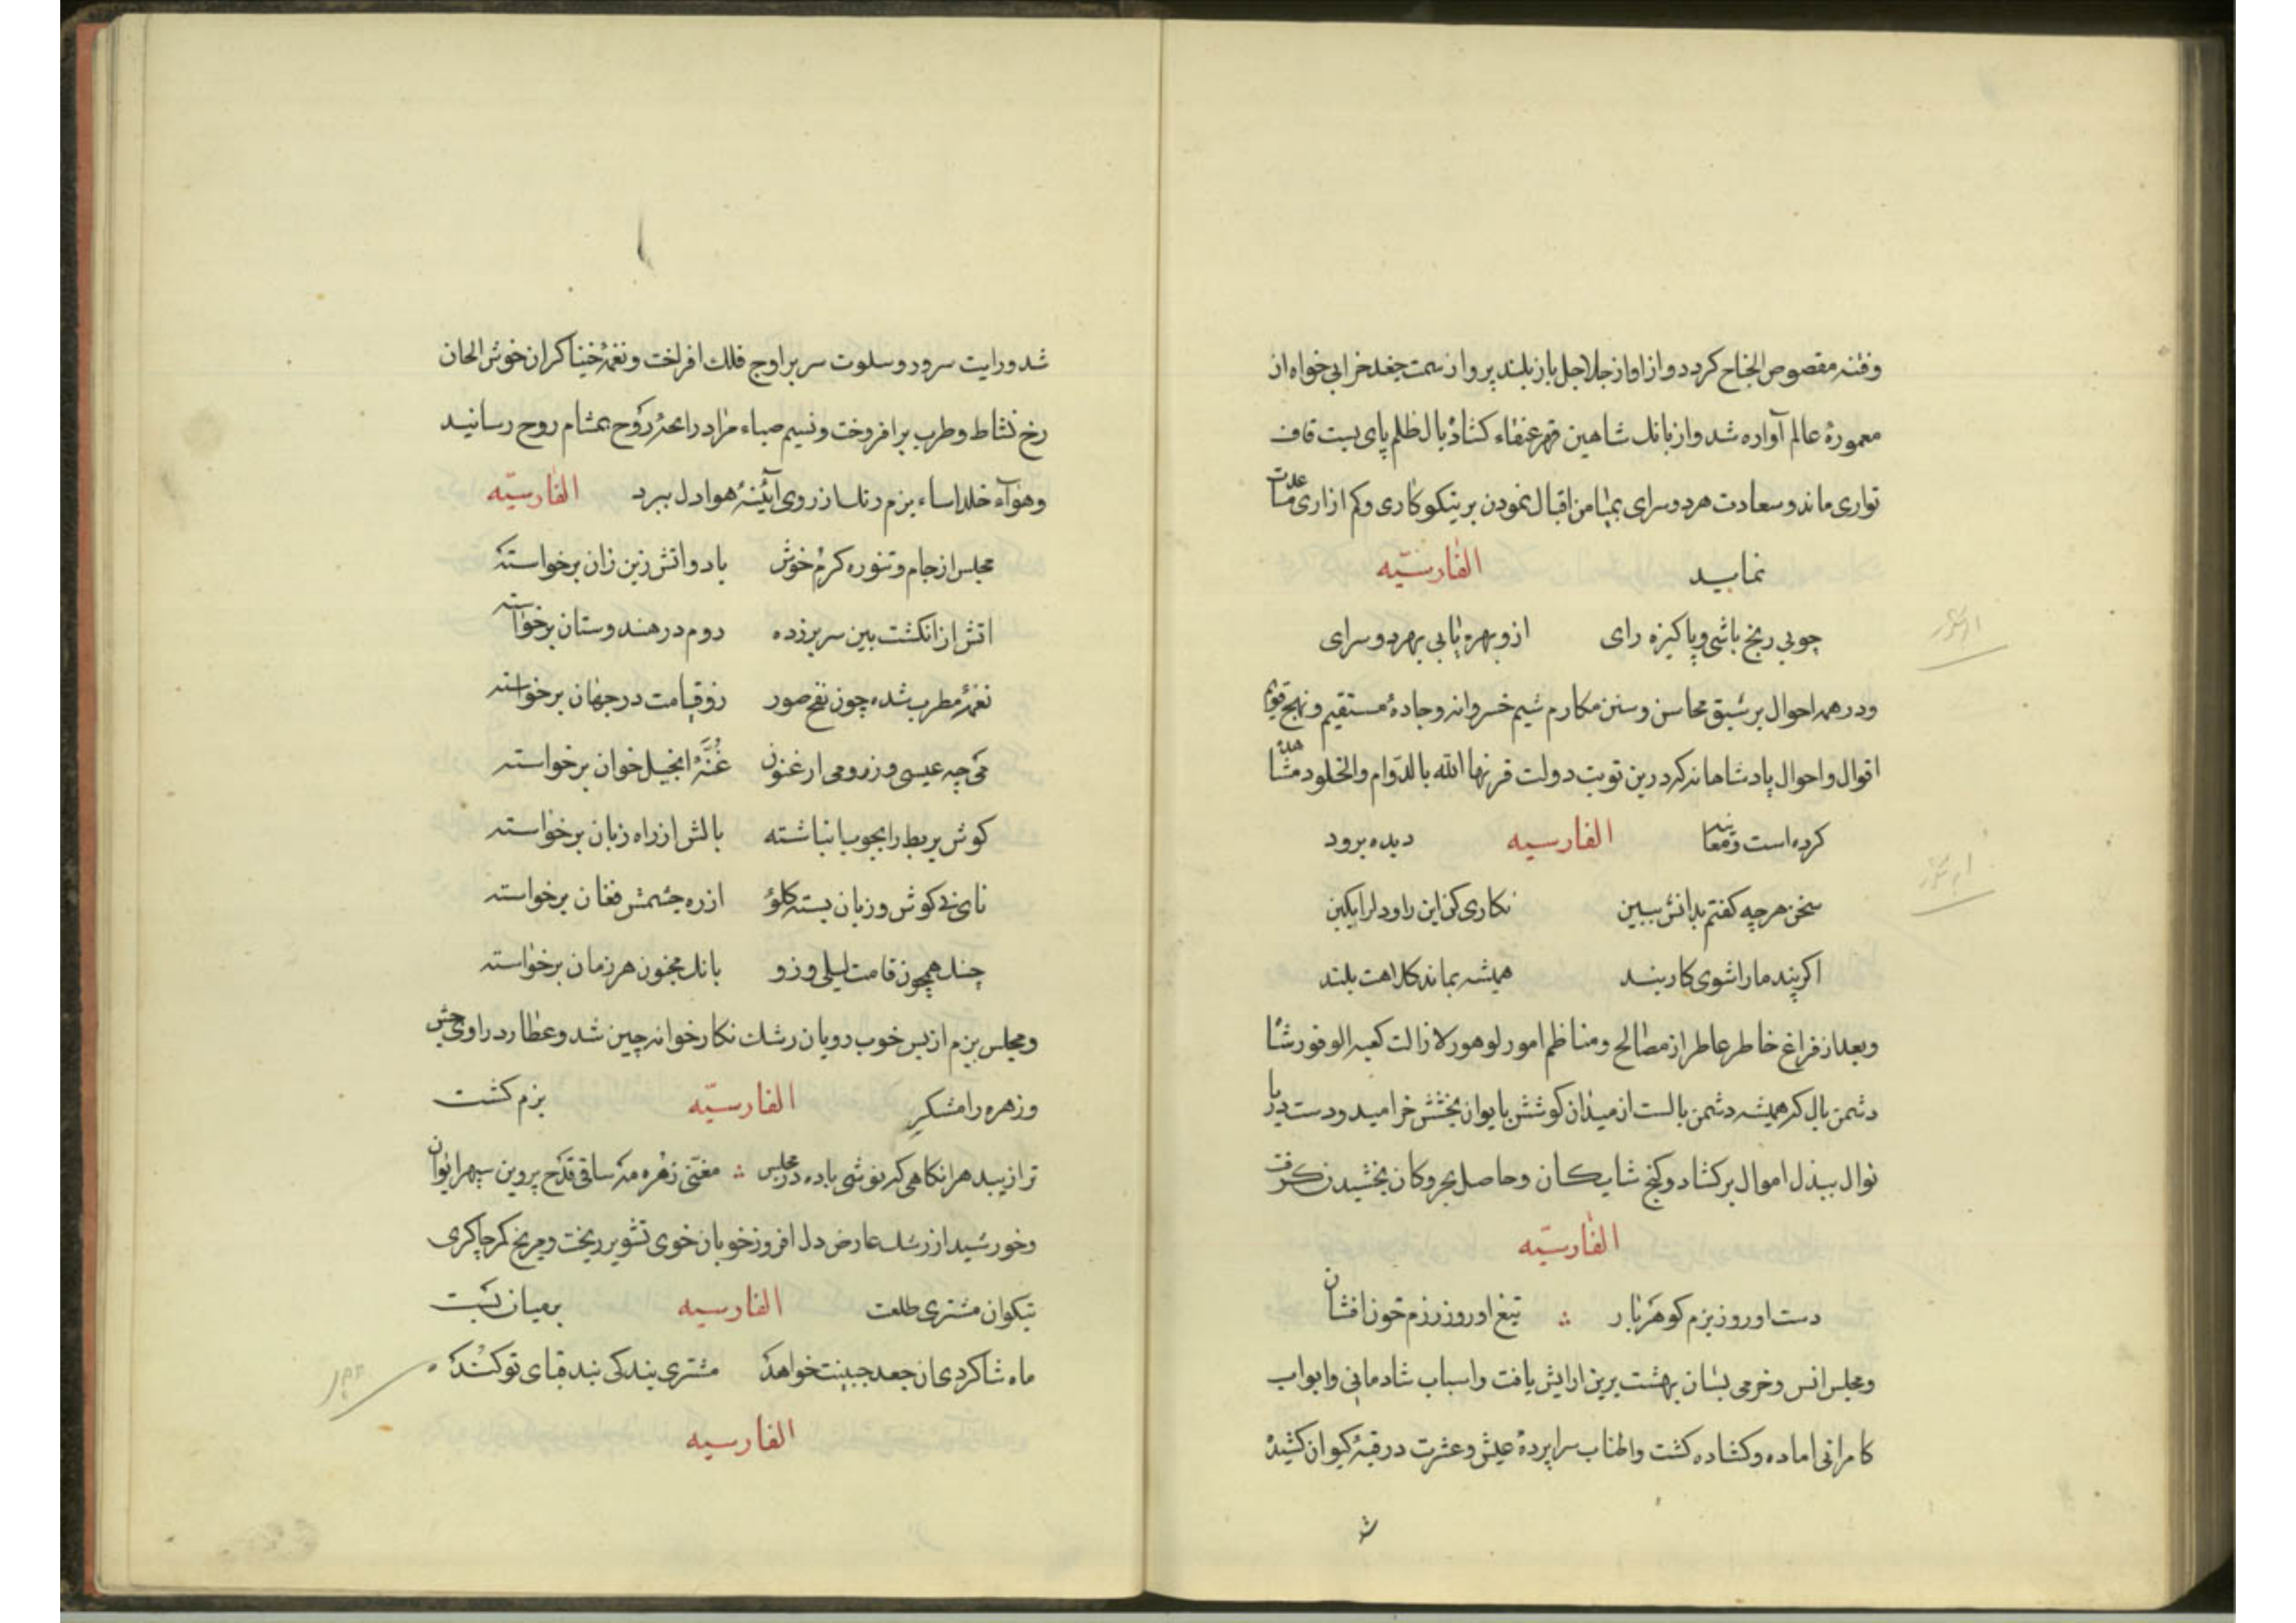 وفتنه مقصوص الجناح کردد و از اواز جلاجل باز بلند پرواز سمت جغد خرابی خواه از
معمورۀ عالم آواره شد و از بانك شاهین قهر عنقاء کشادۀ بال ظلم پای بست قاف
تواری ماند و سعادت هر دو سرای بمیامن اقبال نمودن بر نیکو کاری و کم ازاری
نماید الفارسیّه
چو بی رنج باشی و پاکیزه رای ازو بهره یابی بهر دو سرای
ودر همه احوال بر سبق محاسن و سنن مکارم شیم خسروانه و جادۀ مستقیم و نهج قویم
اقوال و احوال پادشاهانه که درین نوبت دولت قرنها الله بالدوام والخلود مشاهده
کرده است و معاینه الفارسیه دیده برود
سخن هر چه کفتم بدانش ببین نکاری کن این را و دل را بکین
اکر پند ما را شوی کار بند همیشه بماند کلاهت بلند
وبعد از فراغ خاطر عاطر از مصالح ومناظم امور لوهور لازالت کعبه الوفور شا
دشمن بال که همیشه دشمن بالست از میدان کوشش بایوان بخشش خرامید و دست دریا
نوال ببذل اموال بر کشاد و کنج شایکان وحاصل بحر و کان بخشیدن کرفت
الفارسیّه
دست او روز بزم کوهر بار ∴ تیغ او روز رزم خون افشان
ومجلس انس و خرمی بسان بهشت برین ارایش یافت و اسباب شادمانی و ابواب
کامرانی اماده و کشاده کشت و اطناب سراپردۀ عیش و عشرت در قبۀ کیوان کشیده
شد
شد ورایت سرور و سلوت سر بر اوج فلك افراخت و نغمۀ خنیاکران خوش الحان
رخ نشاط و طرب بر افروخت و نسیم صباء مراد رایحۀ روح بمشام روح رسانید
وهواء خلد اساء بزم زنك از روی آیئنۀ هوا دل ببرد الفارسیّه
مجلس از جام و تنوره کرم خوش باد و اتش زین زان برخواسته
اتش از انکشت بین سر بر زده دوم در هندوستان برخواسته
نغمۀ مطرب شده چون نفخ صور زو قیامت در جهان برخواسته
می چه عیسی و ز رومی ارغنون غُنّۀ انجیل خوان برخواسته
کوش بربط را بچوب انباشته بالش از راه زبان برخواسته
نای نی کوش و زبان بسته کلو از ره چشمش فغان برخواسته
چنك همچون قامت لیلی و زو بانك مجنون هر زمان برخواسته
ومجلس بزم از بس خوب رویان رشك نکار خوانه چین شد وعطارد راوی خوش
وزهره رامشکر الفارسیّه بزم کشت
ترا زیبد هر انکاهی که نوشی باده در مجلس ∴ مغنی زهره مه ساقی قدح پروین سپهر ایوان
وخورشید از رشك عارض دل افروز خوبان خوی تشویر ریخت و مریخ کمر چاکری
نیکوان مشتری طلعت الفارسیه بر میان بست
ماه شاکردی ان جعد جبینت خواهد مشتری بندکی بند قبای تو کند
الفارسیه